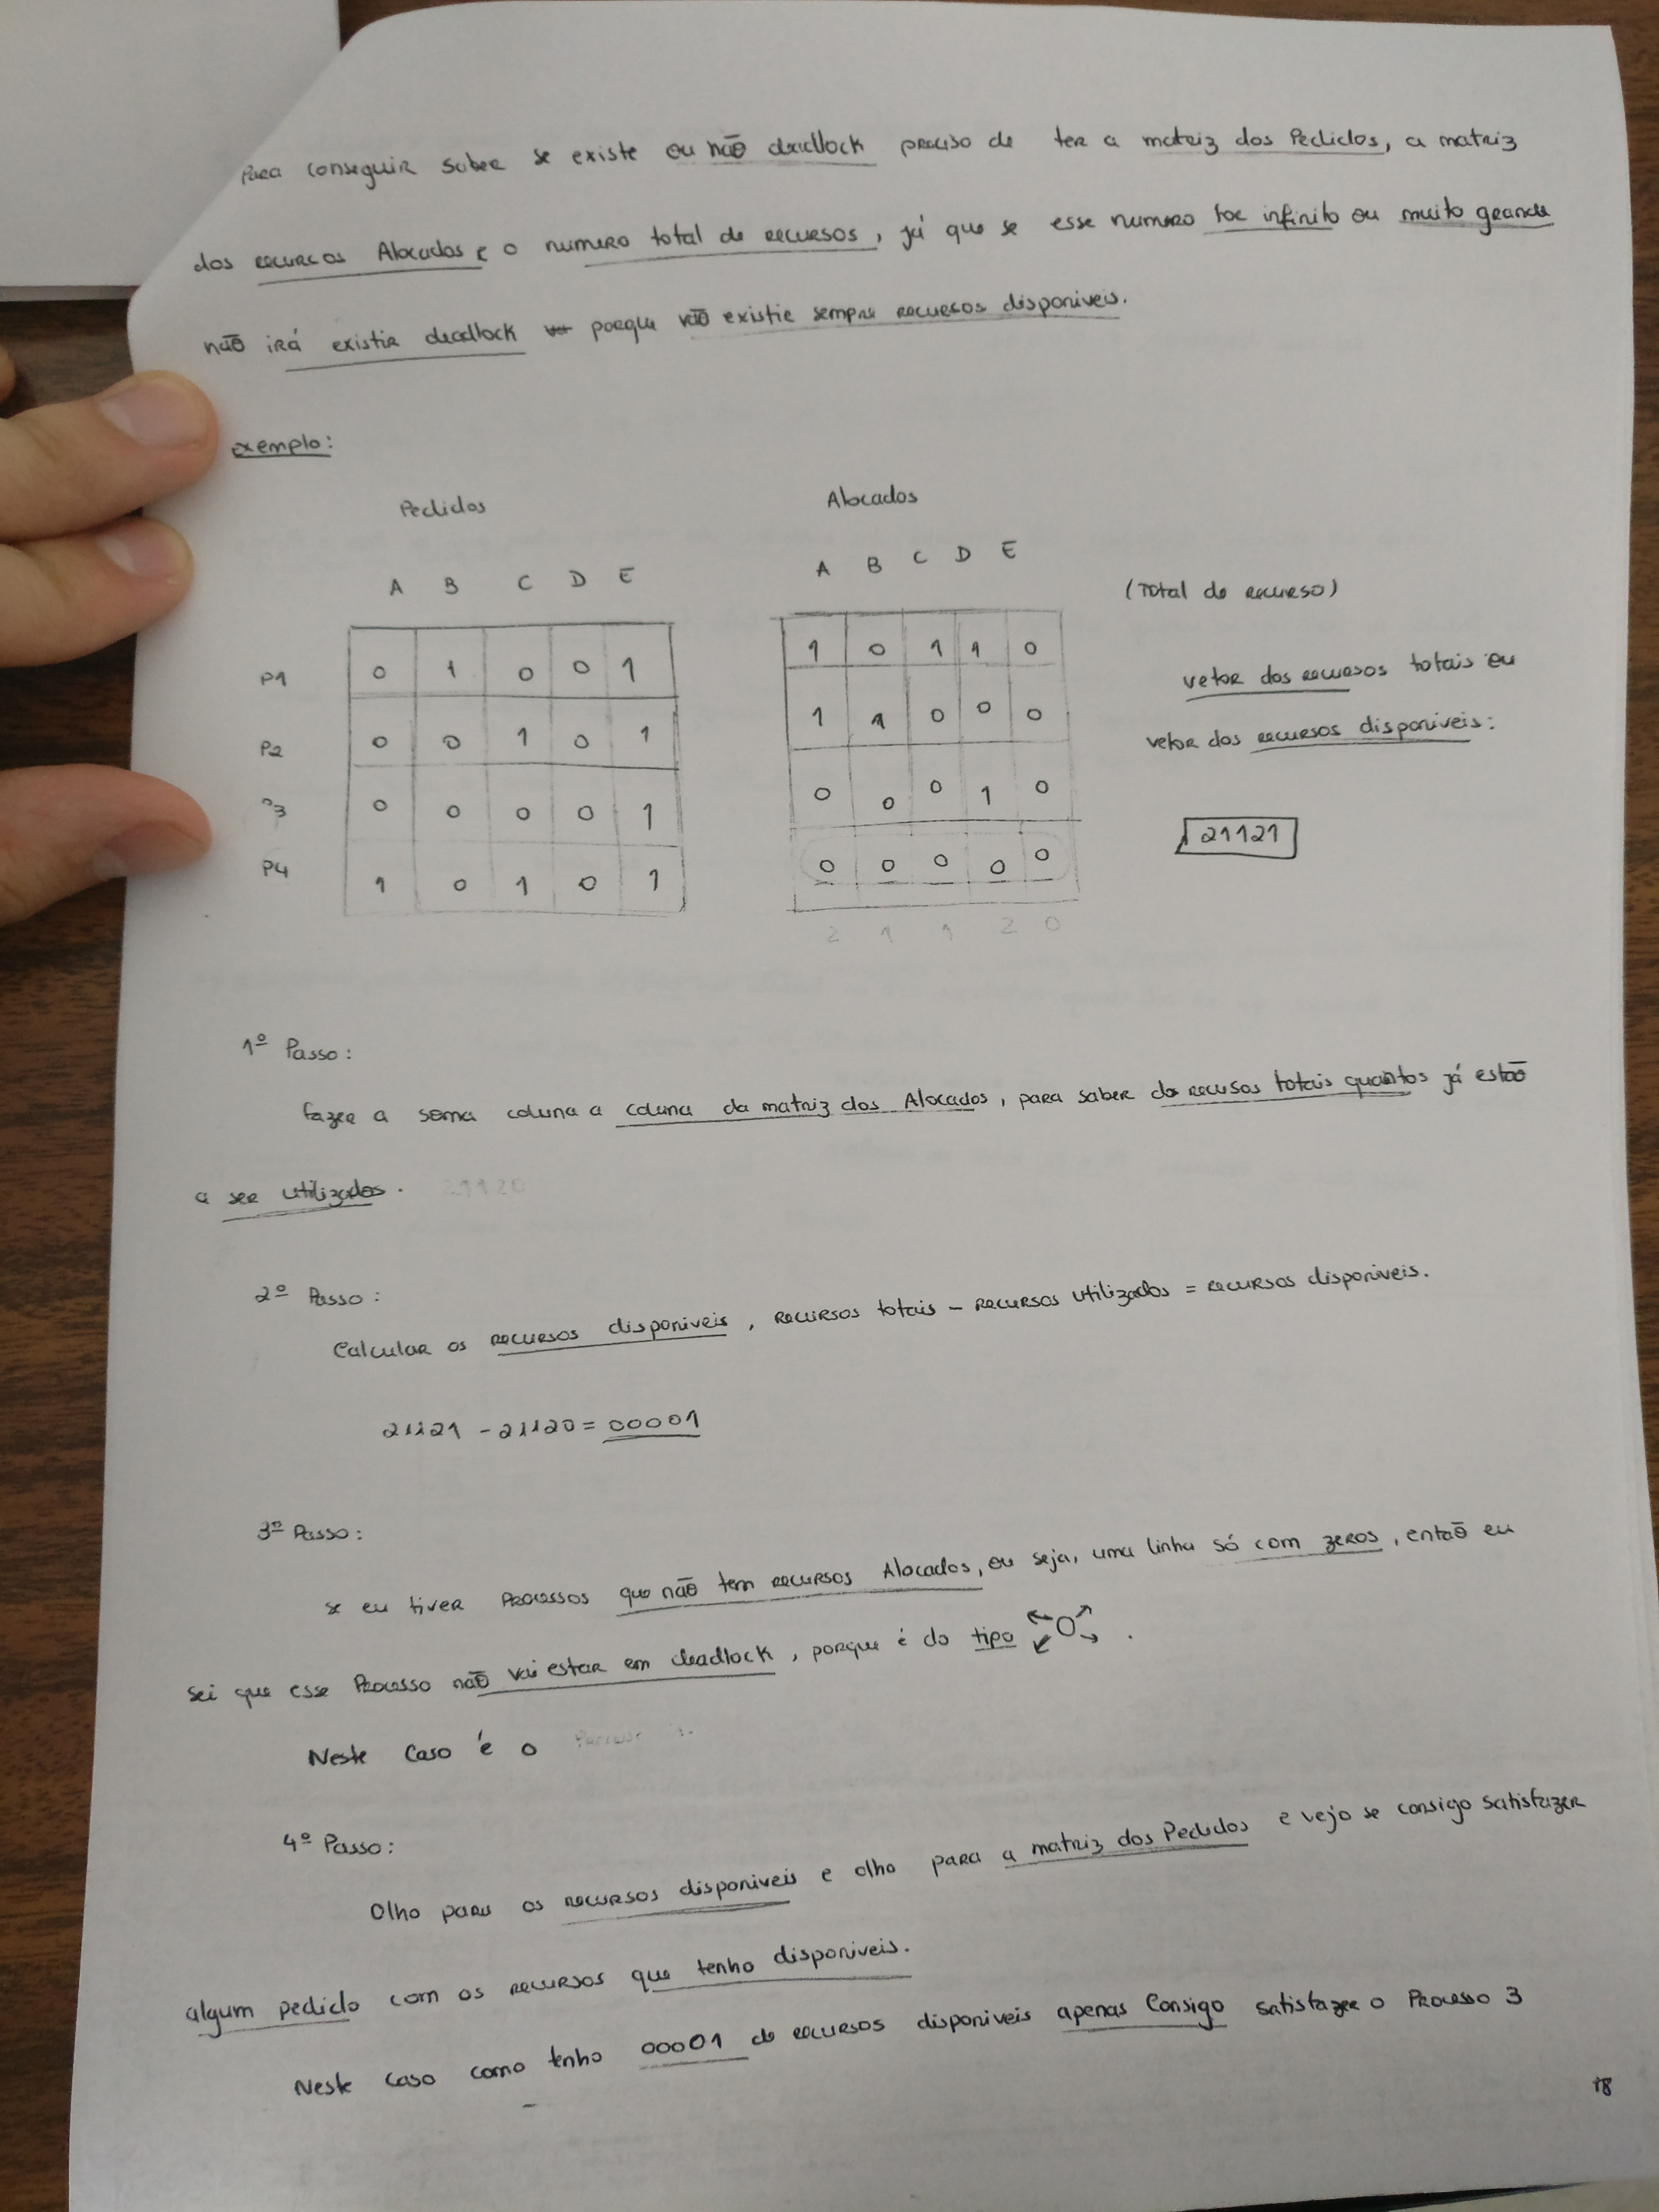 Para conseguir saber se existe ou não deadlock preciso de ter a matriz dos Pedidos, a matriz
dos recurcos Alocados e o numero total de recursos, já que se esse numero for infinito ou muito grande
não irá existir deadlock porque vão existir sempre recursos disponiveis.
exemplo:
Pedidos
Alocados
A B C D E
A B C D E
(Total de recurso)
P1 0 1 0 0 1
1 0 1 1 0
vetor dos recursos totais ou
P2 0 0 1 0 1
1 1 0 0 0
vetor dos recursos disponiveis:
P3 0 0 0 0 1
0 0 0 1 0
21121
P4 1 0 1 0 1
0 0 0 0 0
2 1 1 2 0
1º Passo:
fazer a soma coluna a coluna da matriz dos Alocados, para saber do recusos totais quantos já estão
a ser utilizados. 21120
2º Passo:
Calcular os recursos disponiveis, recursos totais - recursos utilizados = recursos disponiveis.
21121 - 21120 = 00001
3º Passo:
se eu tiver Processos que não tem recursos Alocados, ou seja, uma linha só com zeros, então eu
sei que esse Processo não vai estar em deadlock, porque é do tipo .
Neste caso é o
4º Passo:
Olho para os recursos disponiveis e olho para a matriz dos Pedidos e vejo se consigo satisfazer
algum pedido com os recursos que tenho disponiveis.
Neste caso como tenho 00001 de recursos disponiveis apenas Consigo satisfazer o Processo 3
18